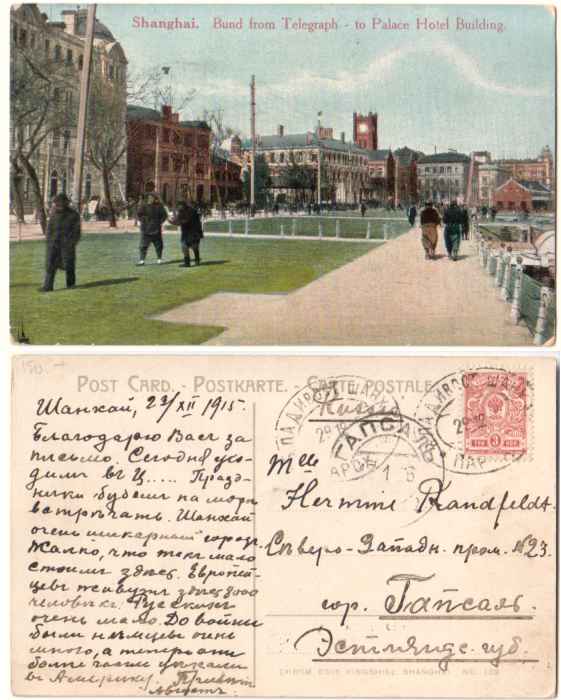 Shanghai. Bund from Telegraph - to Palace Hotel Building.
150.-
POST CARD. - POSTKARTE. - CARTE POSTALE
Russie
Шанхай, 23/XII 1915.
Благодарю Васъ за
письмо. Сегодня ухо-
димъ въ Ц..... Празд-
ники будемъ на морѣ
встрѣчать. Шанхай
очень шикарный городъ.
Жалко, что такъ мало
стоимъ здѣсь. Европей-
цевъ живутъ здѣсь 8000
человѣкъ. Русскихъ
очень мало. До войны
были нѣмцы очень
много, а теперь они
болѣе частью уѣхали
въ Америку. Привѣтъ
Августъ.
ВЛАДИВОСТ. ШАНХ.
29.12
ПАРОХ.
ГАПСАЛЬ
1 6
ВЛАДИВОСТ. ШАНХ.
29.12
ПАРОХ.
3
Mlle
Hermine Brandfeldt.
Сѣверо-Западн. пром. №23.
гор. Гапсаль.
Эстляндс. губ.
KINGSHILL, SHANGHAI. NO.